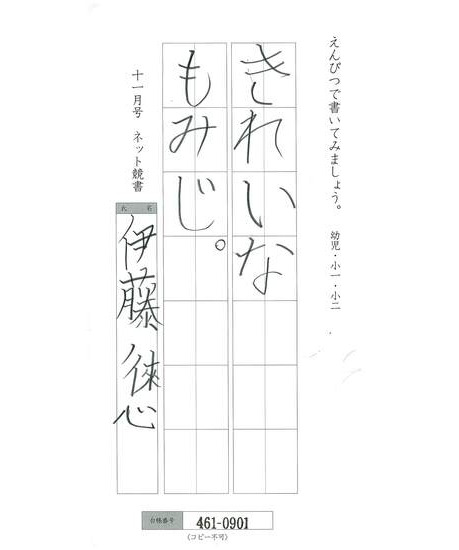 えんぴつで書いてみましょう。 幼児・小一・小二
きれいな
もみじ。
十一月号 ネット競書
氏名
伊藤 徠心
台帳番号 461-0901
(コピー不可)